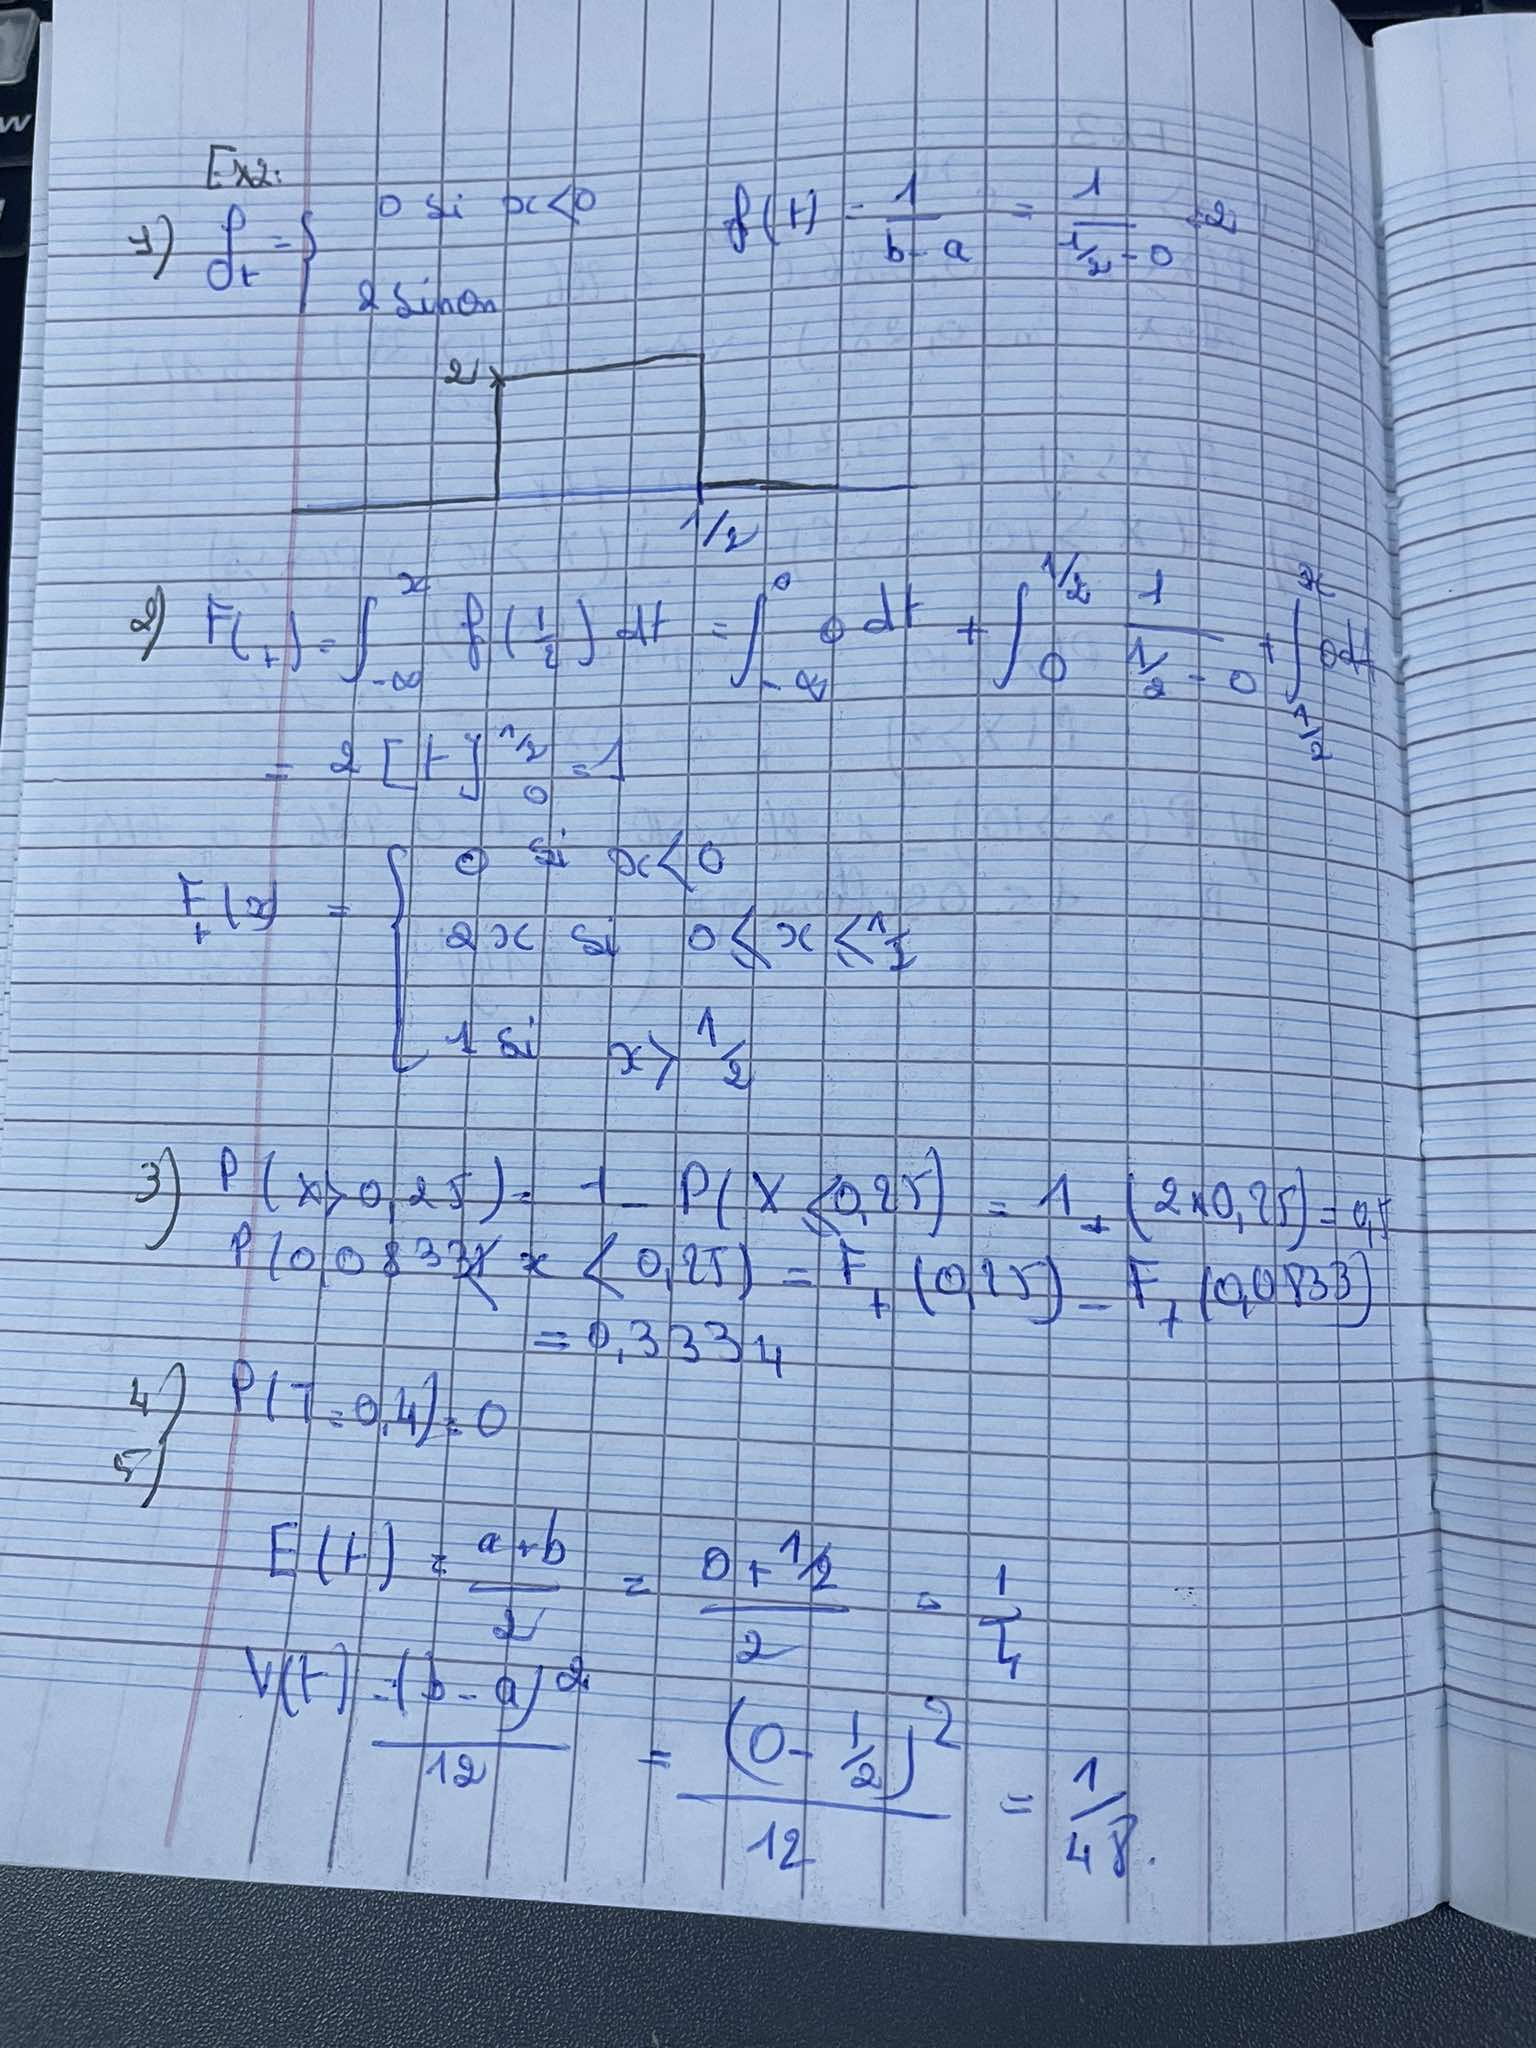 Ex2:
1) f_dt = { 0 si x<0    f(t) = 1/(b-a) = 1/(1/2 - 0) = 2
2 sinon
2
1/2
2) F(t) = ∫_{-∞}^{x} f(1/2) dt = ∫_{-∞}^{0} 0 dt + ∫_{0}^{1/2} 1/(1/2 - 0) + ∫_{1/2}^{x} 0dt
= 2 [t]_{0}^{1/2} = 1
F_t(x) = { 0 si x<0
2x si 0 ⩽ x ⩽ 1/2
1 si x > 1/2
3) P(x>0,25) = 1 - P(X ⩽0,25) = 1 - (2x0,25) = 0,5
P(0,0833< x < 0,25) = F_t(0,25) - F_t(0,0833)
= 0,3334
4) P(T=0,4) = 0
5)
E(t) = (a+b)/2 = (0 + 1/2)/2 = 1/4
V(t) = (b-a)²/12 = (0 - 1/2)²/12 = 1/48.